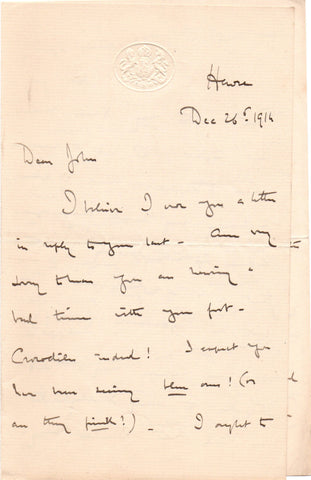 Havre
Dec 26th 1914
Dear John
I believe I owe you a letter
in reply to your last - Am very
sorry to hear you are having a
bad time with your foot -
Crocodiles indeed! I expect you
have been seeing blue ones! (or
are they pink?) - I ought to